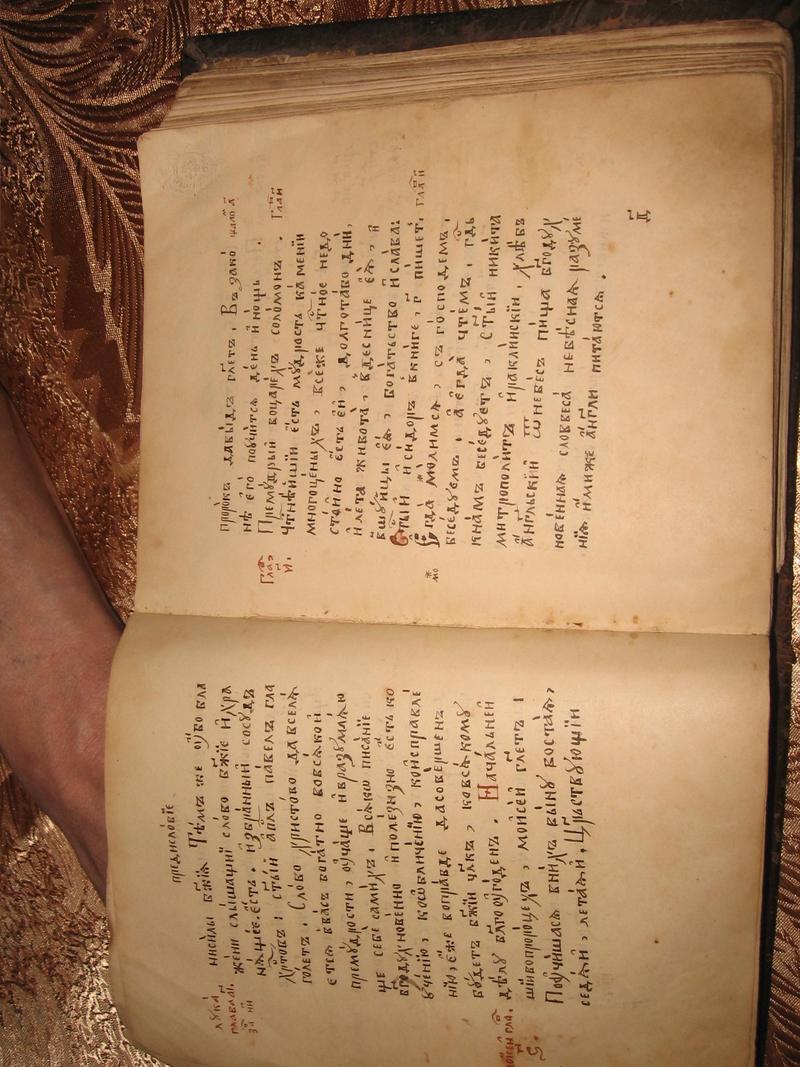 предисло́вїе
ниси́лы бж҃їѧ. Тѣ́мъ же ᲂу҆́бо бла
же́ни слы́шащїи сло́во бж҃їе и҆хра
нѧ́щее. є҆́сть. и҆збра́нный сосу́дъ
хрⷭ҇товъ. ст҃ы́й а҆пⷭ҇лъ па́велъ гла
го́летъ. Сло́во хрⷭ҇и́стово давселѧ́
етсѧ въва́съ бога́тно вовсѧ́кой
прему́дрости, ᲂу҆ча́ще и҆вразумлѧ́ю
ще себѐ самѣ́хъ. Всѧ́ко писа́нїе
бг҃одухнове́нно и҆поле́зно є҆́сть ко
ᲂу҆че́нїю, коѡбличе́нїю, коиспра́вле
нїю, є҆́же вопра́вде. дасоверше́нъ
бу́детъ бж҃їй чл҃къ, ковсѧ́кому
дѣ́лу бл҃гоᲂуго́денъ. Нача́льнѣй
шїй вопроро́цехъ, моисе́й гл҃етъ.
Поᲂучи́шасѧ вни́хъ вы́ну воста́ѧ,
седѧ́й, лета́ѧй. Црⷭ҇твующїй
лука̀
глава
за҃ н҃и
гла,
прⷪ҇ро́къ дв҃ы́дъ гл҃етъ. Въ зако
нѣ є҆го̀ поᲂучи́тсѧ де́нь и҆но́щь.
Прему́дрый воцаре́хъ соломо́нъ.
Чтⷭ҇нѣ́йшїй є҆́сть му́дрость ка́менїй
многоцѣ́нныхъ, все́же чтⷭ҇но́е недо
сто́йно є҆́сть е҆́й, долгота́бо дні́й,
и҆лѣ́та живота̀, вдесни́це є҆ѧ̀, а҆
вшу́йцы є҆ѧ̀, бога́тьство и҆сла́ва:
Ст҃ы́й и҆си́доръ вкни́ге, г҃ пи́шет. гла
Е҆гда̀ мо́лимсѧ, съ го́сподемъ,
бесѣ́дуемъ. а҆є҆гда̀ чте́мъ, гд҃ь
кна́мъ бесѣ́дуетъ, Ст҃ы́й ники́та
митрополи́тъ и҆ракли́искїй, хлѣ́бъ
а҆́нг҃льскїй ѿнебе́съ пи́ща бг҃оду́х
нове́ннаѧ словеса̀ небⷭ҇е́снаѧ разумѣ
нїѧ и҆ми́же а҆́нг҃ли пита́ютсѧ.
гла
мо
д҃